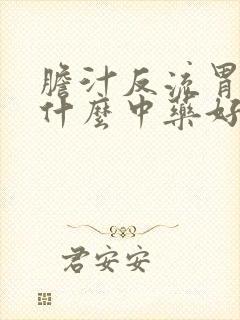 膽汁反流胃
什麼中藥好
君安安